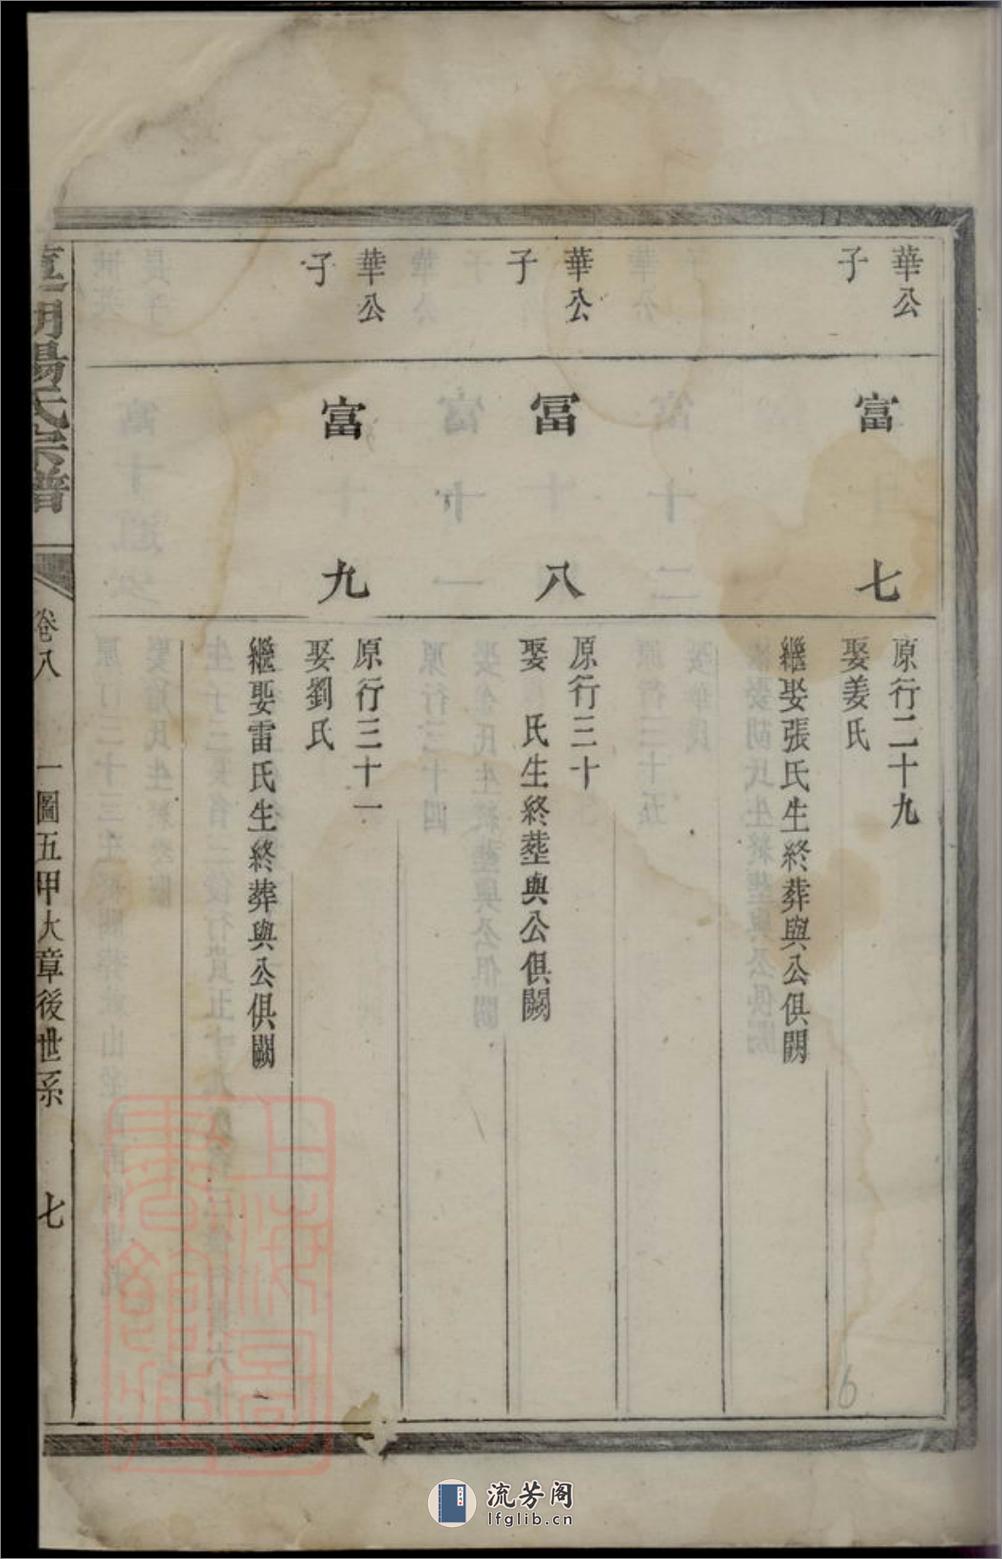 華公
子
富七
原行二十九
娶姜氏
繼娶張氏生終葬與公俱闕
華公
子
冨八
原行三十
娶　氏生終塟與公俱闕
華公
子
富九
原行三十一
娶劉氏
繼娶雷氏生終葬與公俱闕
湯氏宗譜
卷八
一圖五甲大章後世系
七
6
上海圖書館藏
流芳阁
lfglib.cn